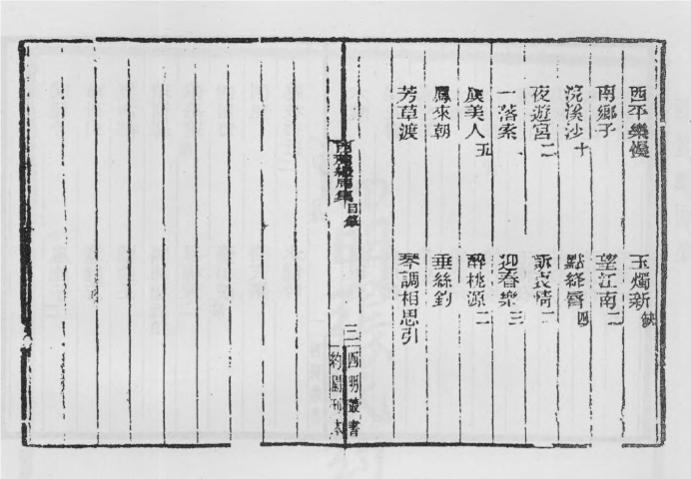 西平樂慢　玉燭新缺
南鄉子　望江南二
浣溪沙十　點絳脣四
夜遊宮二　訴衷情二
一落索　迎春樂三
虞美人五　醉桃源二
鳳來朝　垂絲釣
芳草渡　琴調相思引
西麓繼周集目錄
三
四明叢書
約園刊本